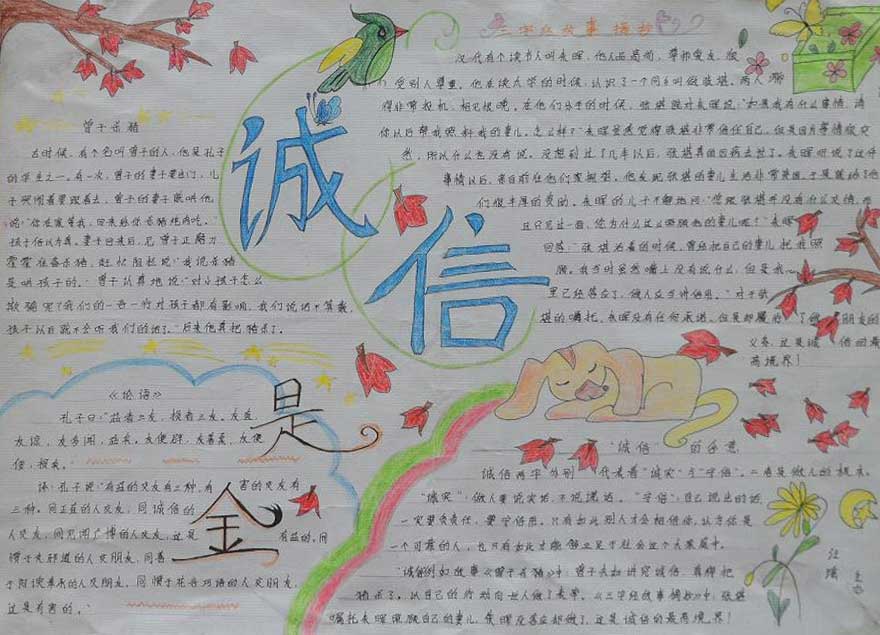 诚信
是
金
曾子杀猪
古时候，有个名叫曾子的人，他是孔子
的学生之一。有一次，曾子的妻子要出门，儿
子哭闹着要跟着去，曾子的妻子哄他
说："你在家等我，回来给你杀猪炖肉吃。"
孩子信以为真。妻子回来后，见曾子正磨刀
霍霍准备杀猪，赶忙阻拦说："我说杀猪
是哄孩子的。"曾子认真地说："对小孩子怎么
欺骗呢？我们的一言一行对孩子都有影响，我们说话不算数，
孩子以后就不会听我们的话了。"后来他真把猪杀了。
《论语》
孔子曰："益者三友，损者三友。友直，
友谅，友多闻，益矣。友便辟，友善柔，友便
佞，损矣。"
译：孔子说："有益的交友有三种，有害的交友有
三种。同正直的人交友，同诚信的
人交友，同见闻广博的人交友，这是有益的。同
惯于走邪道的人交朋友，同善
于阿谀奉承的人交朋友，同惯于花言巧语的人交朋友，
这是有害的。"
三字经故事摘抄
汉代有个读书人叫朱晖，他人品高尚，
受别人尊重。他在读太学的时候，认识了一个同乡叫做张堪，两人
得非常投机，相见恨晚。在他们分手的时候，张堪就对朱晖说："如果我有什么事情，请
你以后帮我照料我的妻儿，怎么样？"朱晖虽然觉得张堪非常信任自己，但是因为事情很突
然，所以什么也没有说。没想到过了几年以后，张堪真的因病去世了。朱晖听说了这件
事情以后，亲自前往他们家探望。他发现张堪的妻儿生活非常困难，于是就给了他
们很丰厚的资助。朱晖的儿子不解地问："您跟张堪并没有什么交情，
且只见过一面，您为什么这么照顾他的妻儿呢？"朱晖
回答："张堪活着的时候，曾经把自己的妻儿把我照
顾。我当时虽然嘴上没有说什么，但是我心
里已经答应了，做人应当讲信用。"对于张
堪的嘱托，朱晖没有任何承诺，但是却履行了做朋友的
义务，这是诚信的最
高境界！
"诚信"的含意
诚信两字分别代表着"诚实"与"守信"。二者是做人的根本。
"诚实"：做人要说实话，不说谎话。"守信"：自己说出的话
一定要负责任，要守信用。只有如此别人才会相信你，认为你是
一个可靠的人，也只有如此才能够立足于社会这个大家庭中。
诚信例如故事《曾子杀猪》中：曾子夫如讲究诚信，真得把
猪杀了，以自己的行动向世人做了表率。《三字经故事摘抄》中，张堪
嘱托朱晖照顾自己的妻儿，朱晖没答应却做了，这是诚信的最高境界！